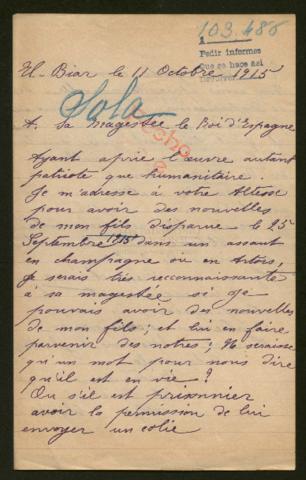 103.486
Pedir informes
Que se hace así
El-Biar le 11 Octobre 1915
Sola
A. Sa magestée le Roi d'Espagne
Ayant aprie l'œuvre autant
patriote que humanitaire.
Je m'adresse à votre Altesse
pour avoir des nouvelles
de mon fils disparue le 25
Septembre 1915 dans un assaut
en champagne ou en Artois,
Je serais très reconnaissante
à sa magestée si je
pouvais avoir des nouvelles
de mon fils; et lui en faire
parvenir des notres; Ne seraisse
qu'un mot pour nous dire
qu'il est en vie?
Ou s'il est prisonnier
avoir la permission de lui
envoyer un colie